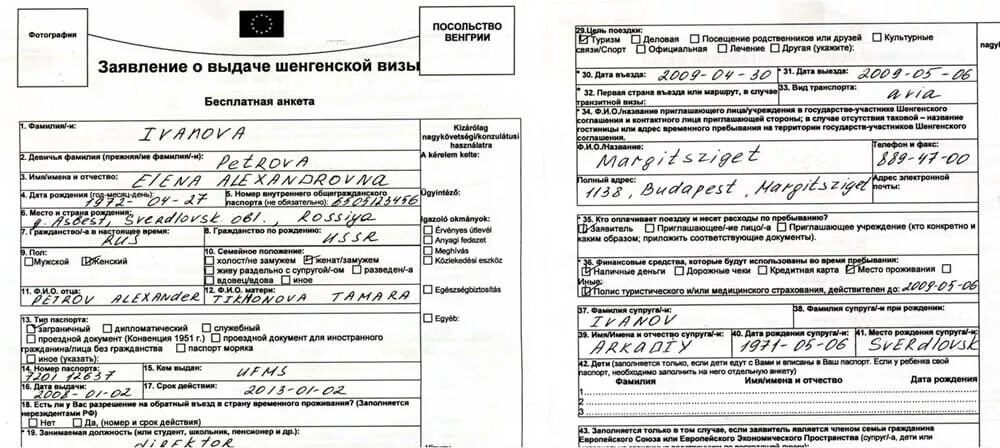 Фотография
ПОСОЛЬСТВО
ВЕНГРИИ
Заявление о выдаче шенгенской визы
Бесплатная анкета
1. Фамилия/-и:
IVANOVA
2. Девичья фамилия (прежняя/ие фамилия/-и):
PETROVA
3. Имя/имена и отчество:
ELENA ALEXANDROVNA
4. Дата рождения (год-месяц-день):
1972-04-27
5. Номер внутреннего общегражданского
паспорта (не обязательно): 6505123456
6. Место и страна рождения:
g. Asbest, Sverdlovsk. obl., Rossiya
7. Гражданство/-а в настоящее время:
RUS
8. Гражданство по рождению:
USSR
9. Пол:
Мужской Женский
10. Семейное положение:
холост/не замужем женат/замужем
живу раздельно с супругой/-ом разведен/-а
вдовец/вдова иное
11. Ф.И.О. отца:
PETROV ALEXANDER
12. Ф.И.О. матери:
TIKHONOVA TAMARA
13. Тип паспорта:
заграничный дипломатический служебный
проездной документ (Конвенция 1951 г.) проездной документ для иностранного
гражданина/лица без гражданства паспорт моряка
иное (указать):
14. Номер паспорта:
7201 12637
15. Кем выдан:
UFMS
16. Дата выдачи:
2008-01-02
17. Срок действия:
2013-01-02
18. Есть ли у Вас разрешение на обратный въезд в страну временного проживания? (Заполняется
нерезидентами РФ)
Нет Да, (номер и срок действия)
* 19. Занимаемая должность (или студент, школьник, пенсионер и др.):
direktor
Kizárólag
nagykövetségi/konzulátusi
használatra
A kérelem kelte:
Ügyintéző:
Igazoló okmányok:
Érvényes útlevél
Anyagi fedezet
Meghívás
Közlekedési eszköz
Egészségbiztosítás
Egyéb:
29.Цель поездки:
Туризм Деловая Посещение родственников или друзей Культурные
связи/Спорт Официальная Лечение Другая (укажите):
* 30. Дата въезда: 2009-04-30
* 31. Дата выезда: 2009-05-06
* 32. Первая страна въезда или маршрут, в случае
транзитной визы:
33. Вид транспорта:
avia
* 34. Ф.И.О./название приглашающего лица/учреждения в государстве-участнике Шенгенского
соглашения и контактного лица приглашающей стороны; в случае отсутствия таковой – название
гостиницы или адрес временного пребывания на территории государств-участников Шенгенского
соглашения.
Ф.И.О./Название:
Margitsziget
Телефон и факс:
889-47-00
Полный адрес:
1138, Budapest, Margitsziget
Адрес электронной
почты:
* 35. Кто оплачивает поездку и несет расходы по пребыванию?
Заявитель Приглашающее/-ие лицо/-а Приглашающее учреждение (кто конкретно и
каким образом; приложить соответствующие документы).
* 36. Финансовые средства, которые будут использованы во время пребывания:
Наличные деньги Дорожные чеки Кредитная карта Место проживания
Иные:
Полис туристического и/или медицинского страхования, действителен до: 2009-05-06
37. Фамилия супруга/-и
IVANOV
38. Фамилия супруга/-и при рождении:
39. Имя/имена и отчество супруга/-и
ARKADIY
40. Дата рождения супруга/-и:
1971-05-06
41. Место рождения супруга/-и
SVERDLOVSK
42. Дети (заполняется только, если дети едут с Вами и вписаны в Ваш паспорт. Если у ребенка свой
паспорт, необходимо заполнить на него отдельную анкету)
Фамилия Имя/имена и отчество Дата рождения
1
2
3
43. Заполняется только в том случае, если заявитель является членом семьи гражданина
Европейского Союза или Европейского Экономического Пространства (супруг/-а, дети или